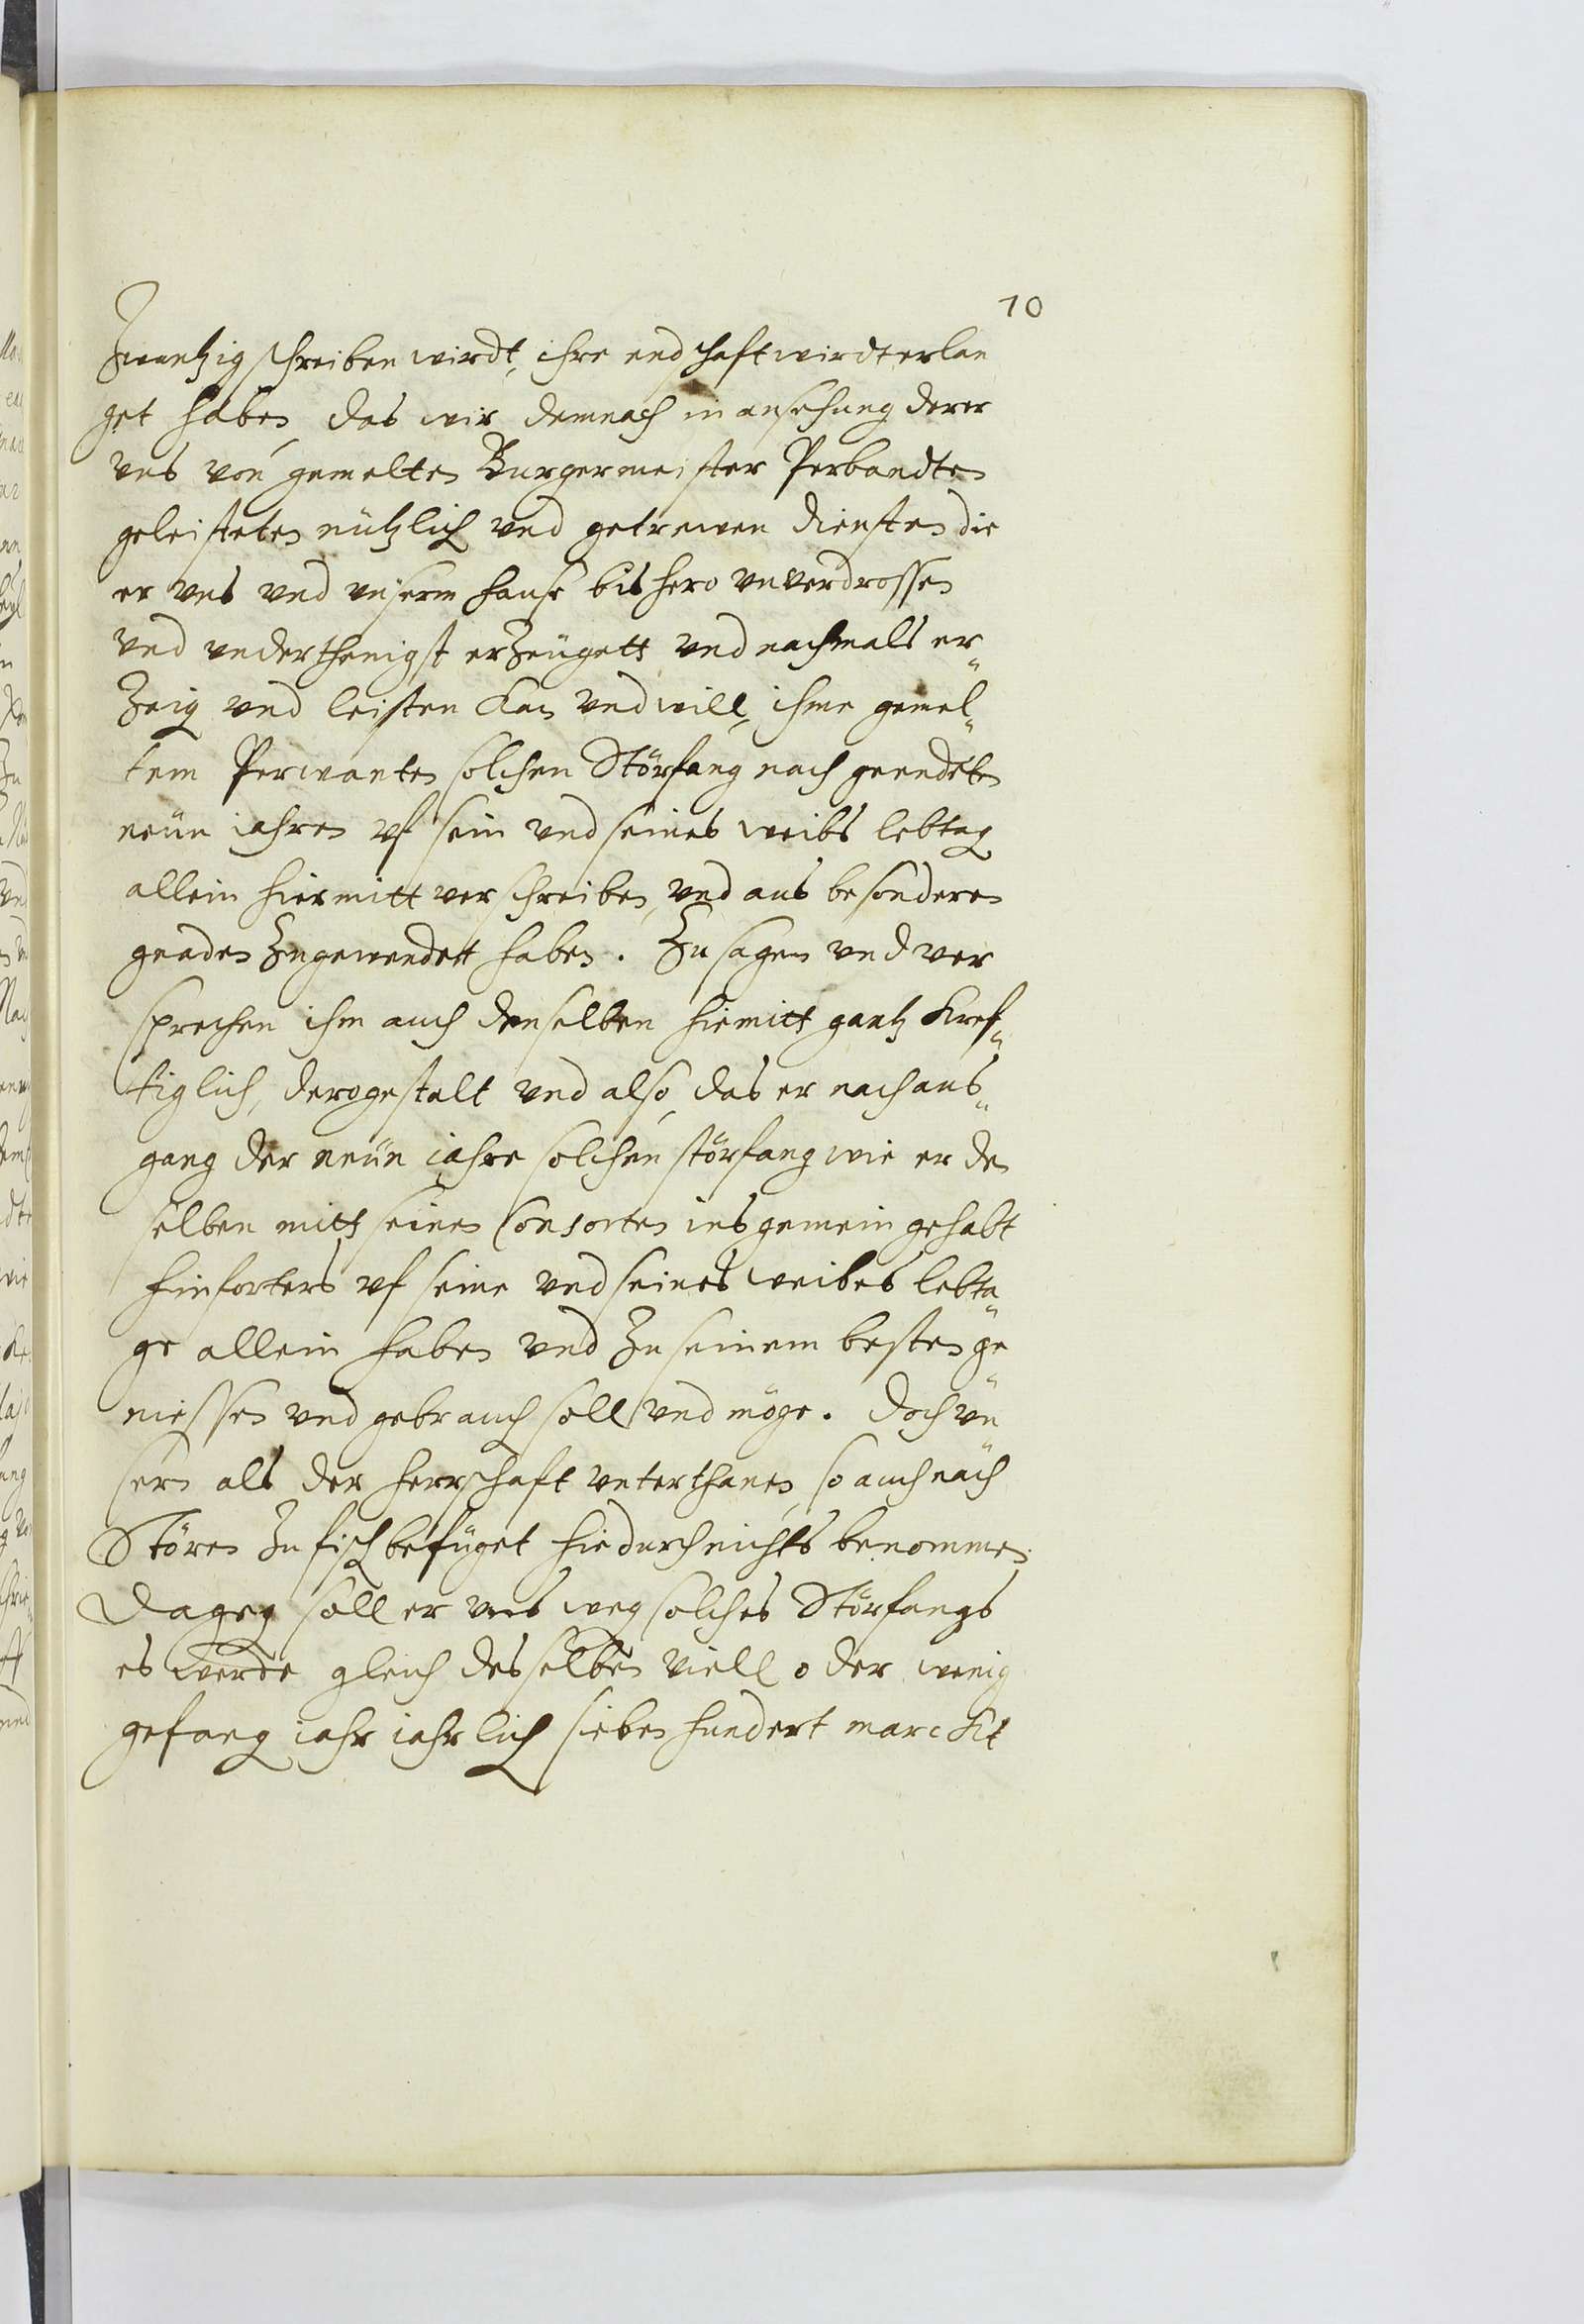 10
Zwantzig schreiben wirdt, ihre endschaft wirdt erlan
get haben das wir demnach in ansehung derer
vns von gemelten Burgermeister Perbandten
geleisteten nützlich vnd getrewen diensten die
er vns vnd vnserm hause bishero vnverdrossen
vnd vnderthenigst erzeugett vnd nachmals er„
zeig vnd leisten kan vnd will, ihme gemel„
tem Perwanten solchen Störfang nach geendeten
neün iahren vf sein vnd seines weibs lebtag
allein hiermitt verschreiben, vnd aus besonderen
gnaden zugewendett haben. Zu sagen vnd ver
sprechen ihm auch denselben hiemitt gantz kref„
tiglich, derogestalt vnd also, das er nach aus„
gang der neün iahre solchen störfang wie er den
selben mitt seinen Consorten ins gemein gehabt
hinforters vf seine vnd seines weibes lebta„
ge allein haben vnd zu seinem besten ge„
niessen vnd gebrauch soll vnd möge. doch vn„
sern als der herrschaft vnterthanen, so auch nach
Stören zu fisch befüget hiedurch nichts benommen
Dageg soll er vns weg solches Störfangs
es werde gleich desselben viell oder wenig
gefang iahr iahrlich sieben hundert marckt